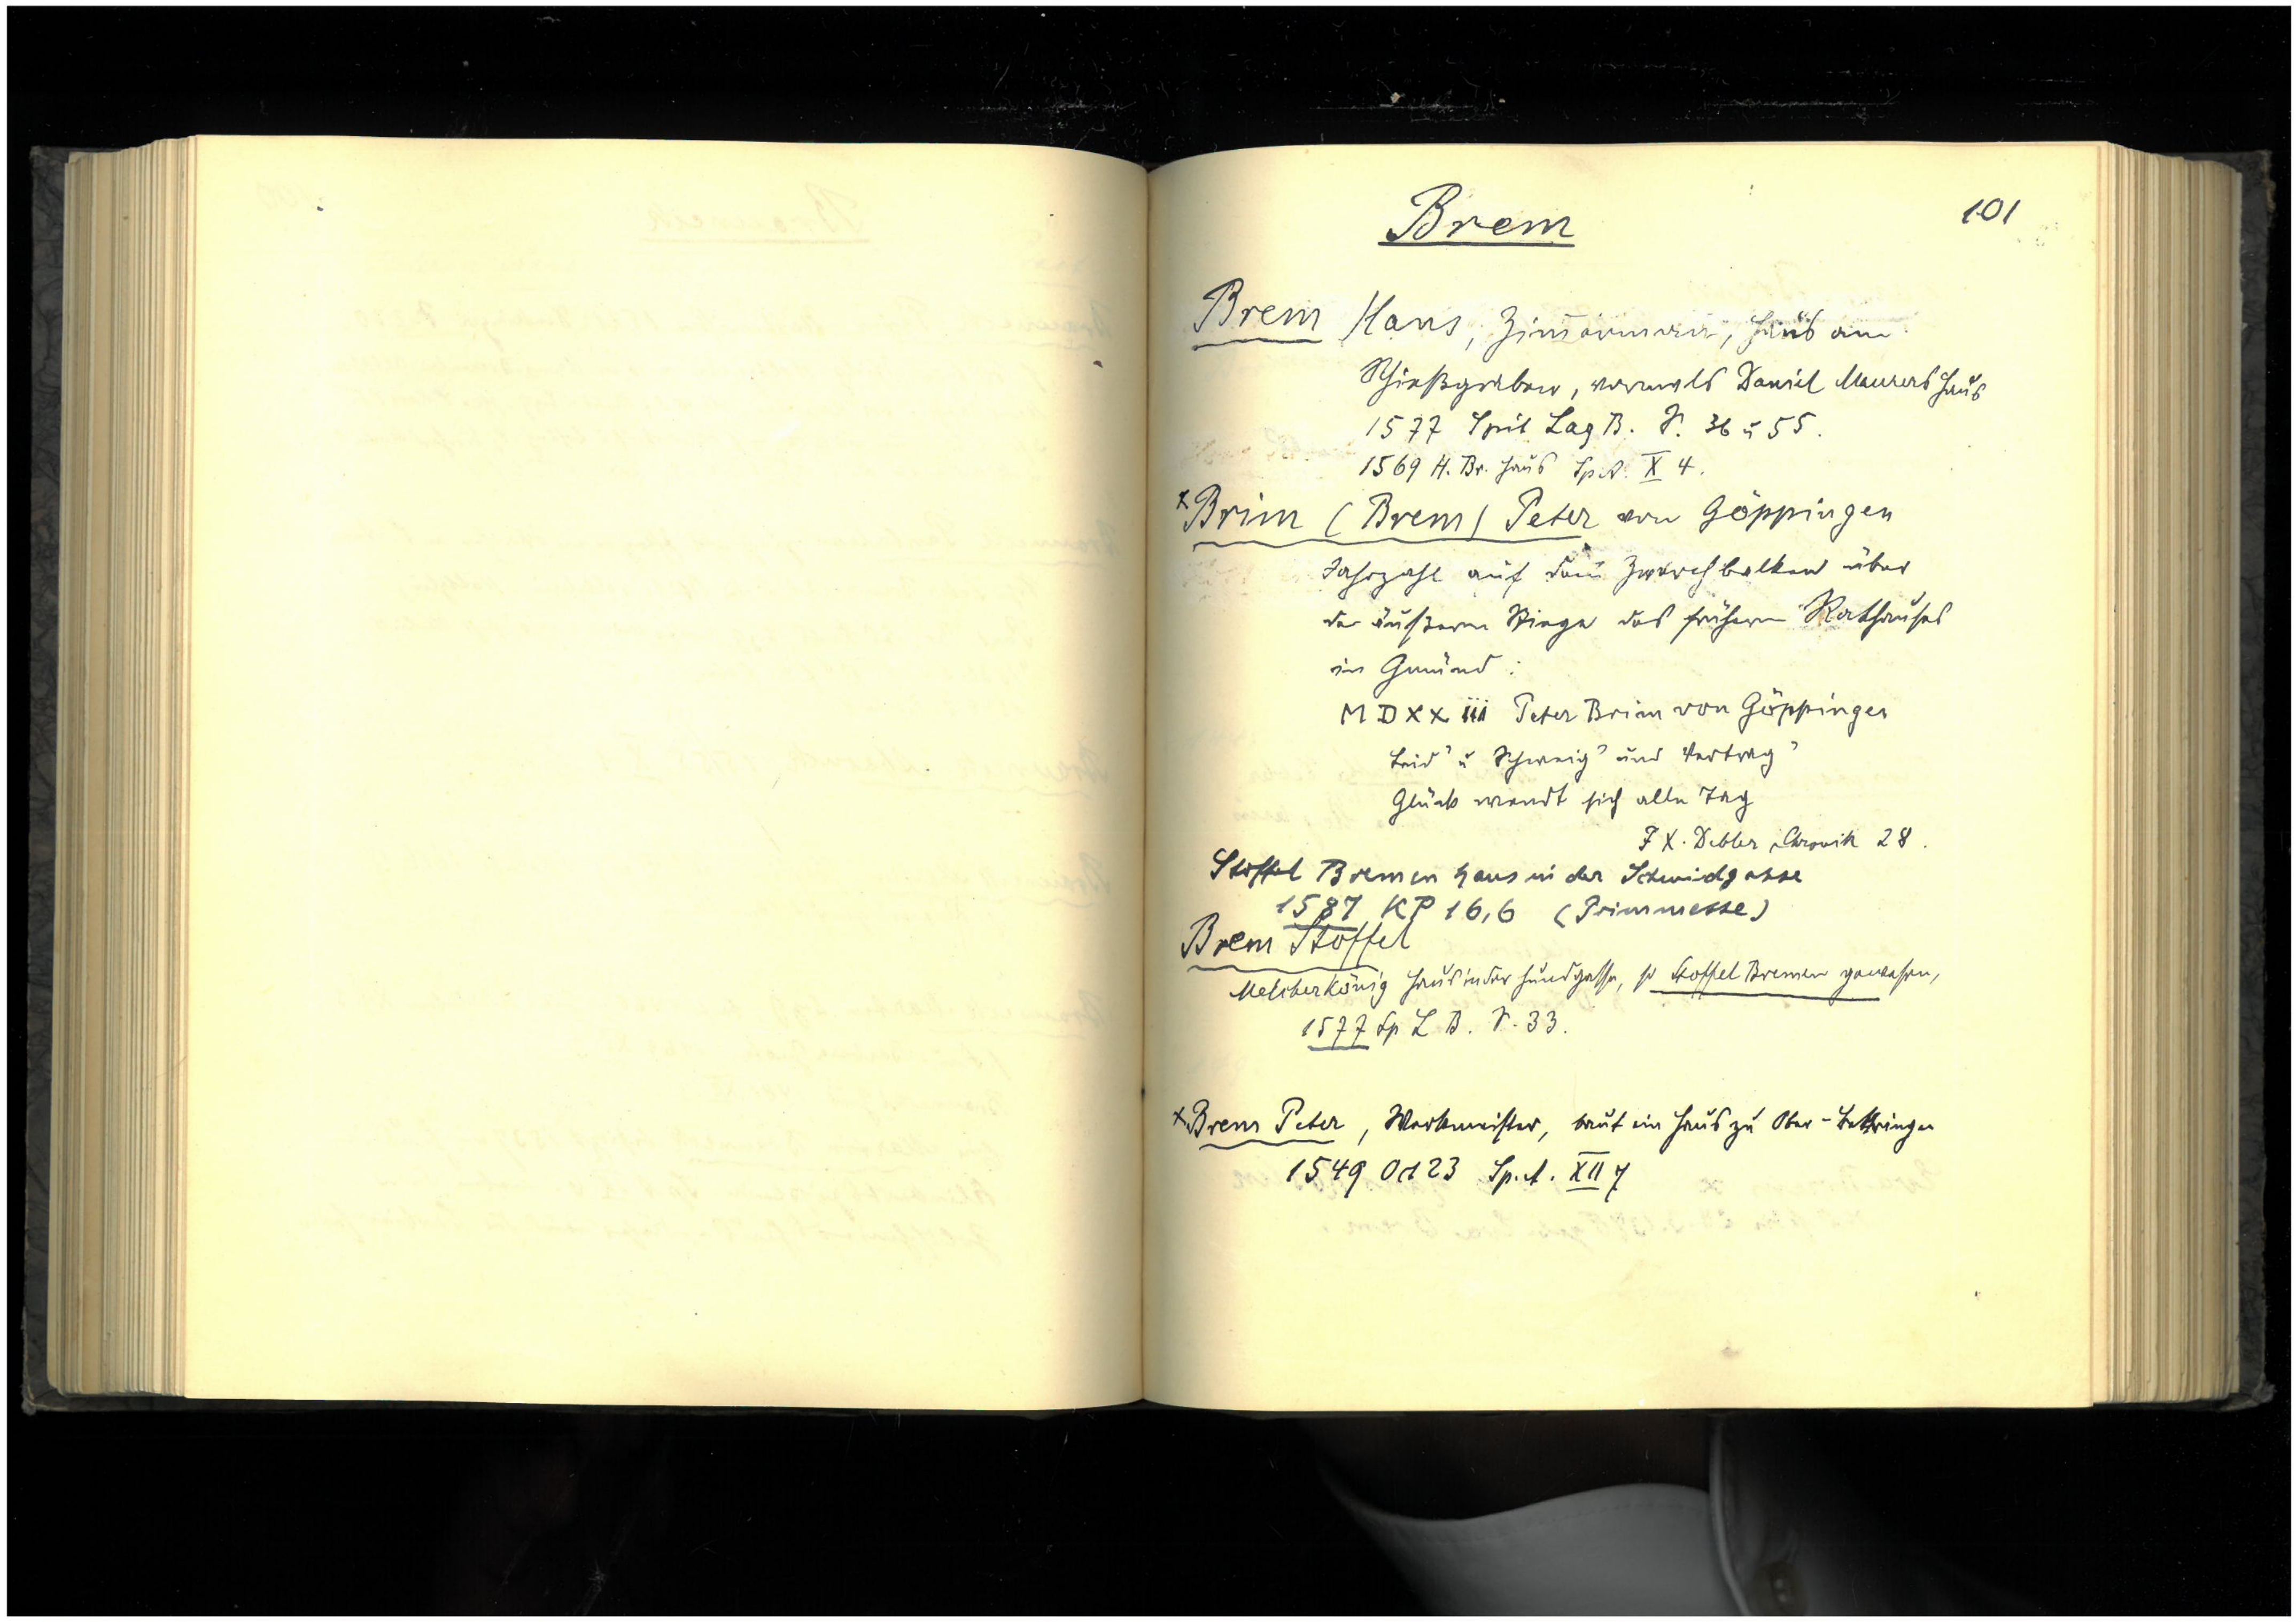 Brem
101
Brem Hans, Zim̄ermann, Haus am
Schießgraben, vormals Daniel Maurers Haus
1577 Spit Lag B. S. 36 u 55.
1569 H. Br. Haus Sp.A. X 4.
x Brim (Brem) Peter von Göppingen
Jahrzahl auf dem Zwerchbalken über
der äußern Stiege des frühern Rathauses
in Gmünd:
MDXXiii Peter Brim von Göppingen
Leid' u Schweig' und Vertrag'
Glück wendt sich alle Tag
F X. Debler, Chronik 28.
Stoffel Bremen Haus in der Schmidgasse
1587 KP 16,6 (Primmesse)
Brem Stoffel
Melcher König Haus in der Hundgasse, so Stoffel Bremen gewesen,
1577 Sp L B. S. 33.
x Brem Peter, Werkmeister, baut ein Haus zu Ober-Bettringen
1549 Oct 23 Sp.A. XII 7